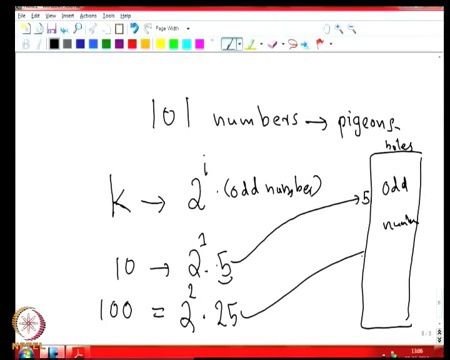 File Edit View Insert Actions Tools Help
Page Width
101 numbers → pigeons
holes
K → 2^i · (odd number)
5 odd
number
10 → 2^1 · 5
100 = 2^2 · 25
13:08